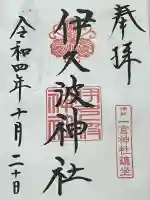 奉拝
伊久波神社
令和四年十月二十日
一宮神社鎮坐